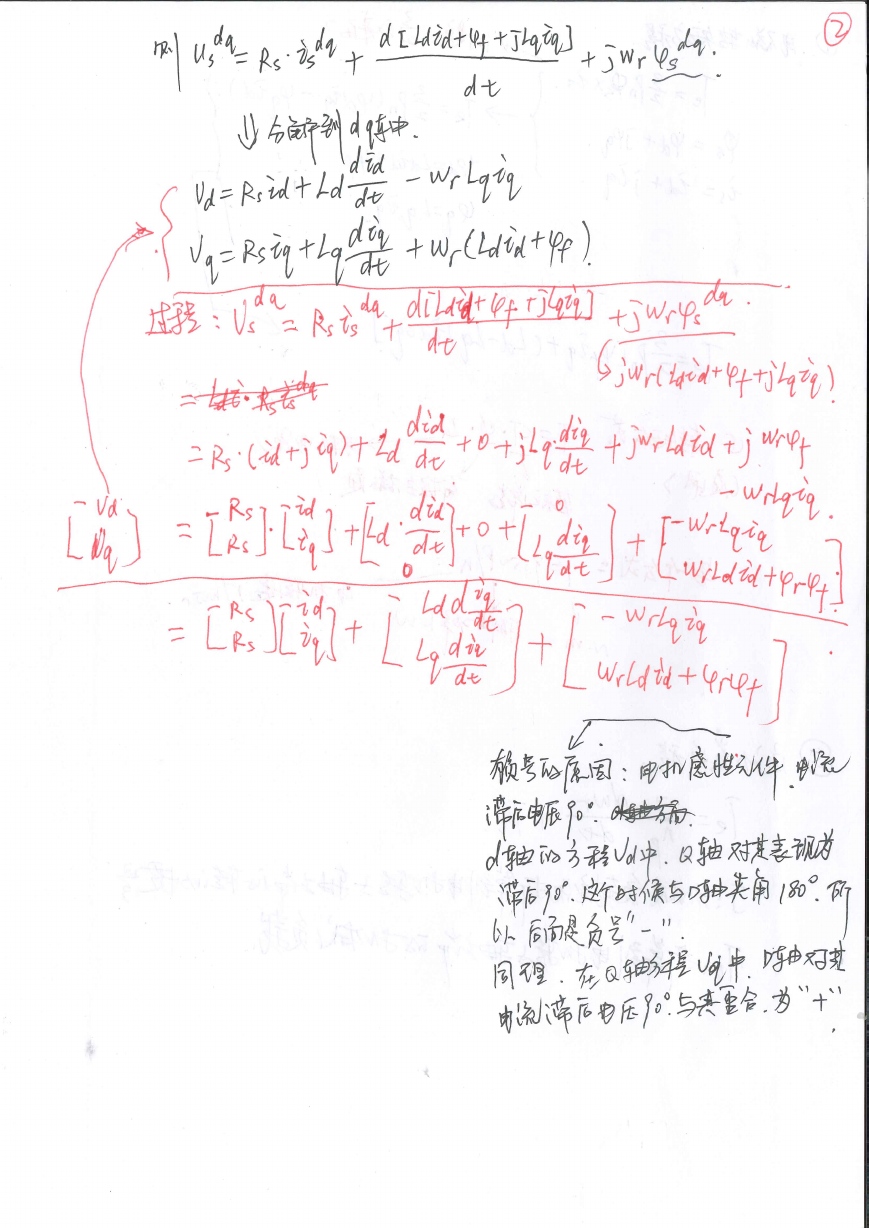 ②
则 U_s^{dq} = R_s · i_s^{dq} + d[Ldid+φf+jLqiq]/dt + jwrφ_s^{dq}.
⇓ 分解到dq轴中.
Vd = Rsid + Ld did/dt − wrLqiq
Vq = Rsiq + Lq diq/dt + wr(Ldid+φf).
过程: V_s^{dq} = Rs i_s^{dq} + d[Ldid+φf+jLqiq]/dt + jwrφ_s^{dq}.
↳ jwr(Ldid+φf+jLqiq).
= Rs·(id+jiq) + Ld did/dt + 0 + jLq·diq/dt + jwrLdid + jwrφf
− wrLqiq.
[Vd Vq] = [Rs Rs]·[id iq] + [Ld·did/dt 0] + 0 + [0 Lq diq/dt] + [−wrLqiq wrLdid+φr-φf]
= [Rs Rs][id iq] + [Ldd iq/dt Lq diq/dt] + [−wrLqiq wrLdid+φrφf].
负号的原因: 电机感性元件. 电流
滞后电压90°.
d轴的方程Vd中. Q轴对其表现为
滞后90°. 这个时候与D轴夹角180°. 所
以 后而是负号"−".
同理. 在Q轴方程Vq中. D轴对其
电流滞后电压90°.与其重合. 为"+".